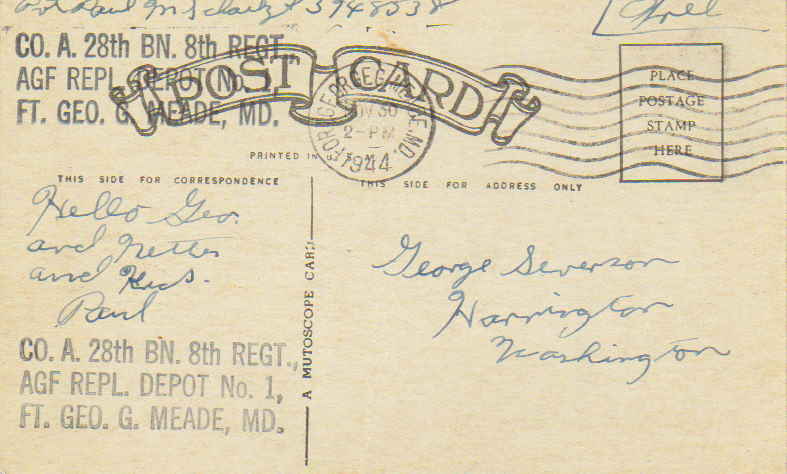 Pvt Paul 3948538 Free
CO. A. 28th BN. 8th REGT.,
AGF REPL. DEPOT No. 1,
FT. GEO. G. MEADE, MD.
POST CARD
FORT GEORGE G. MEADE, MD.
30
2-PM
1944
PLACE
POSTAGE
STAMP
HERE
PRINTED IN
THIS SIDE FOR CORRESPONDENCE
THIS SIDE FOR ADDRESS ONLY
Hello Geo.
and Nettie
and Kids.
Paul
A MUTOSCOPE CARD
George Severson
Harrington
Washington
CO. A. 28th BN. 8th REGT.,
AGF REPL. DEPOT No. 1,
FT. GEO. G. MEADE, MD.